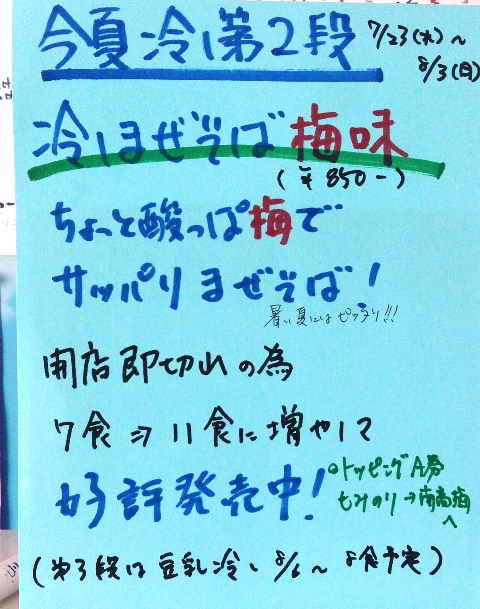 今夏冷し第2段
7/23(水)～
8/3(日)
冷しまぜそば梅味
(¥850-)
ちょっと酸っぱ梅で
サッパリまぜそば!
暑い夏にはピッタリ!!!
開店即切れの為
7食⇒11食に増やして
好評発売中!
トッピングA券
もみのり→南高梅へ
(第3段は豆乳冷し 8/6～ 8食予定)